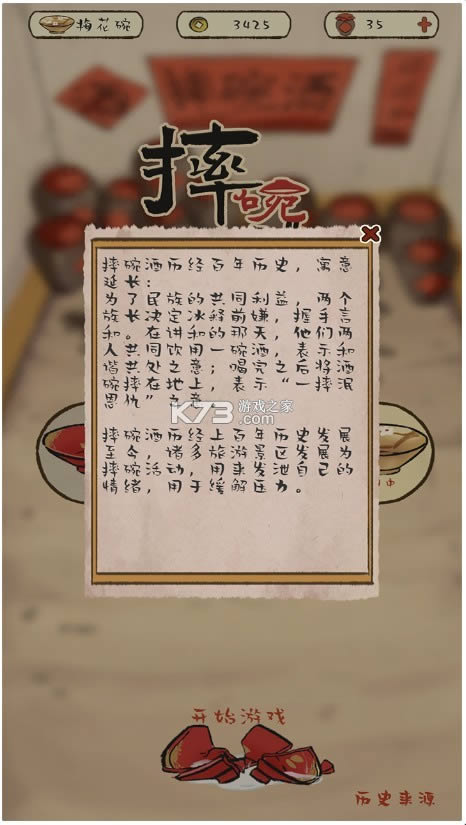 梅花碗
3425
35
摔碗酒
摔碗
摔碗酒历经百年历史，寓意
延长：
为了民族的共同利益，两个
族长决定冰释前嫌，握手言
和。在讲和的那天，他们两
人共同饮用一碗酒，表示和
谐共处之意；喝完之后将酒
碗摔在地上，表示“一摔泯
恩仇”之意
K73 游戏之家
.com
摔碗酒，历经上百年历史发展
至今，诸多旅游景区发展为
摔碗活动，用来发泄自己的
情绪，用于缓解压力。
开始游戏
历史来源